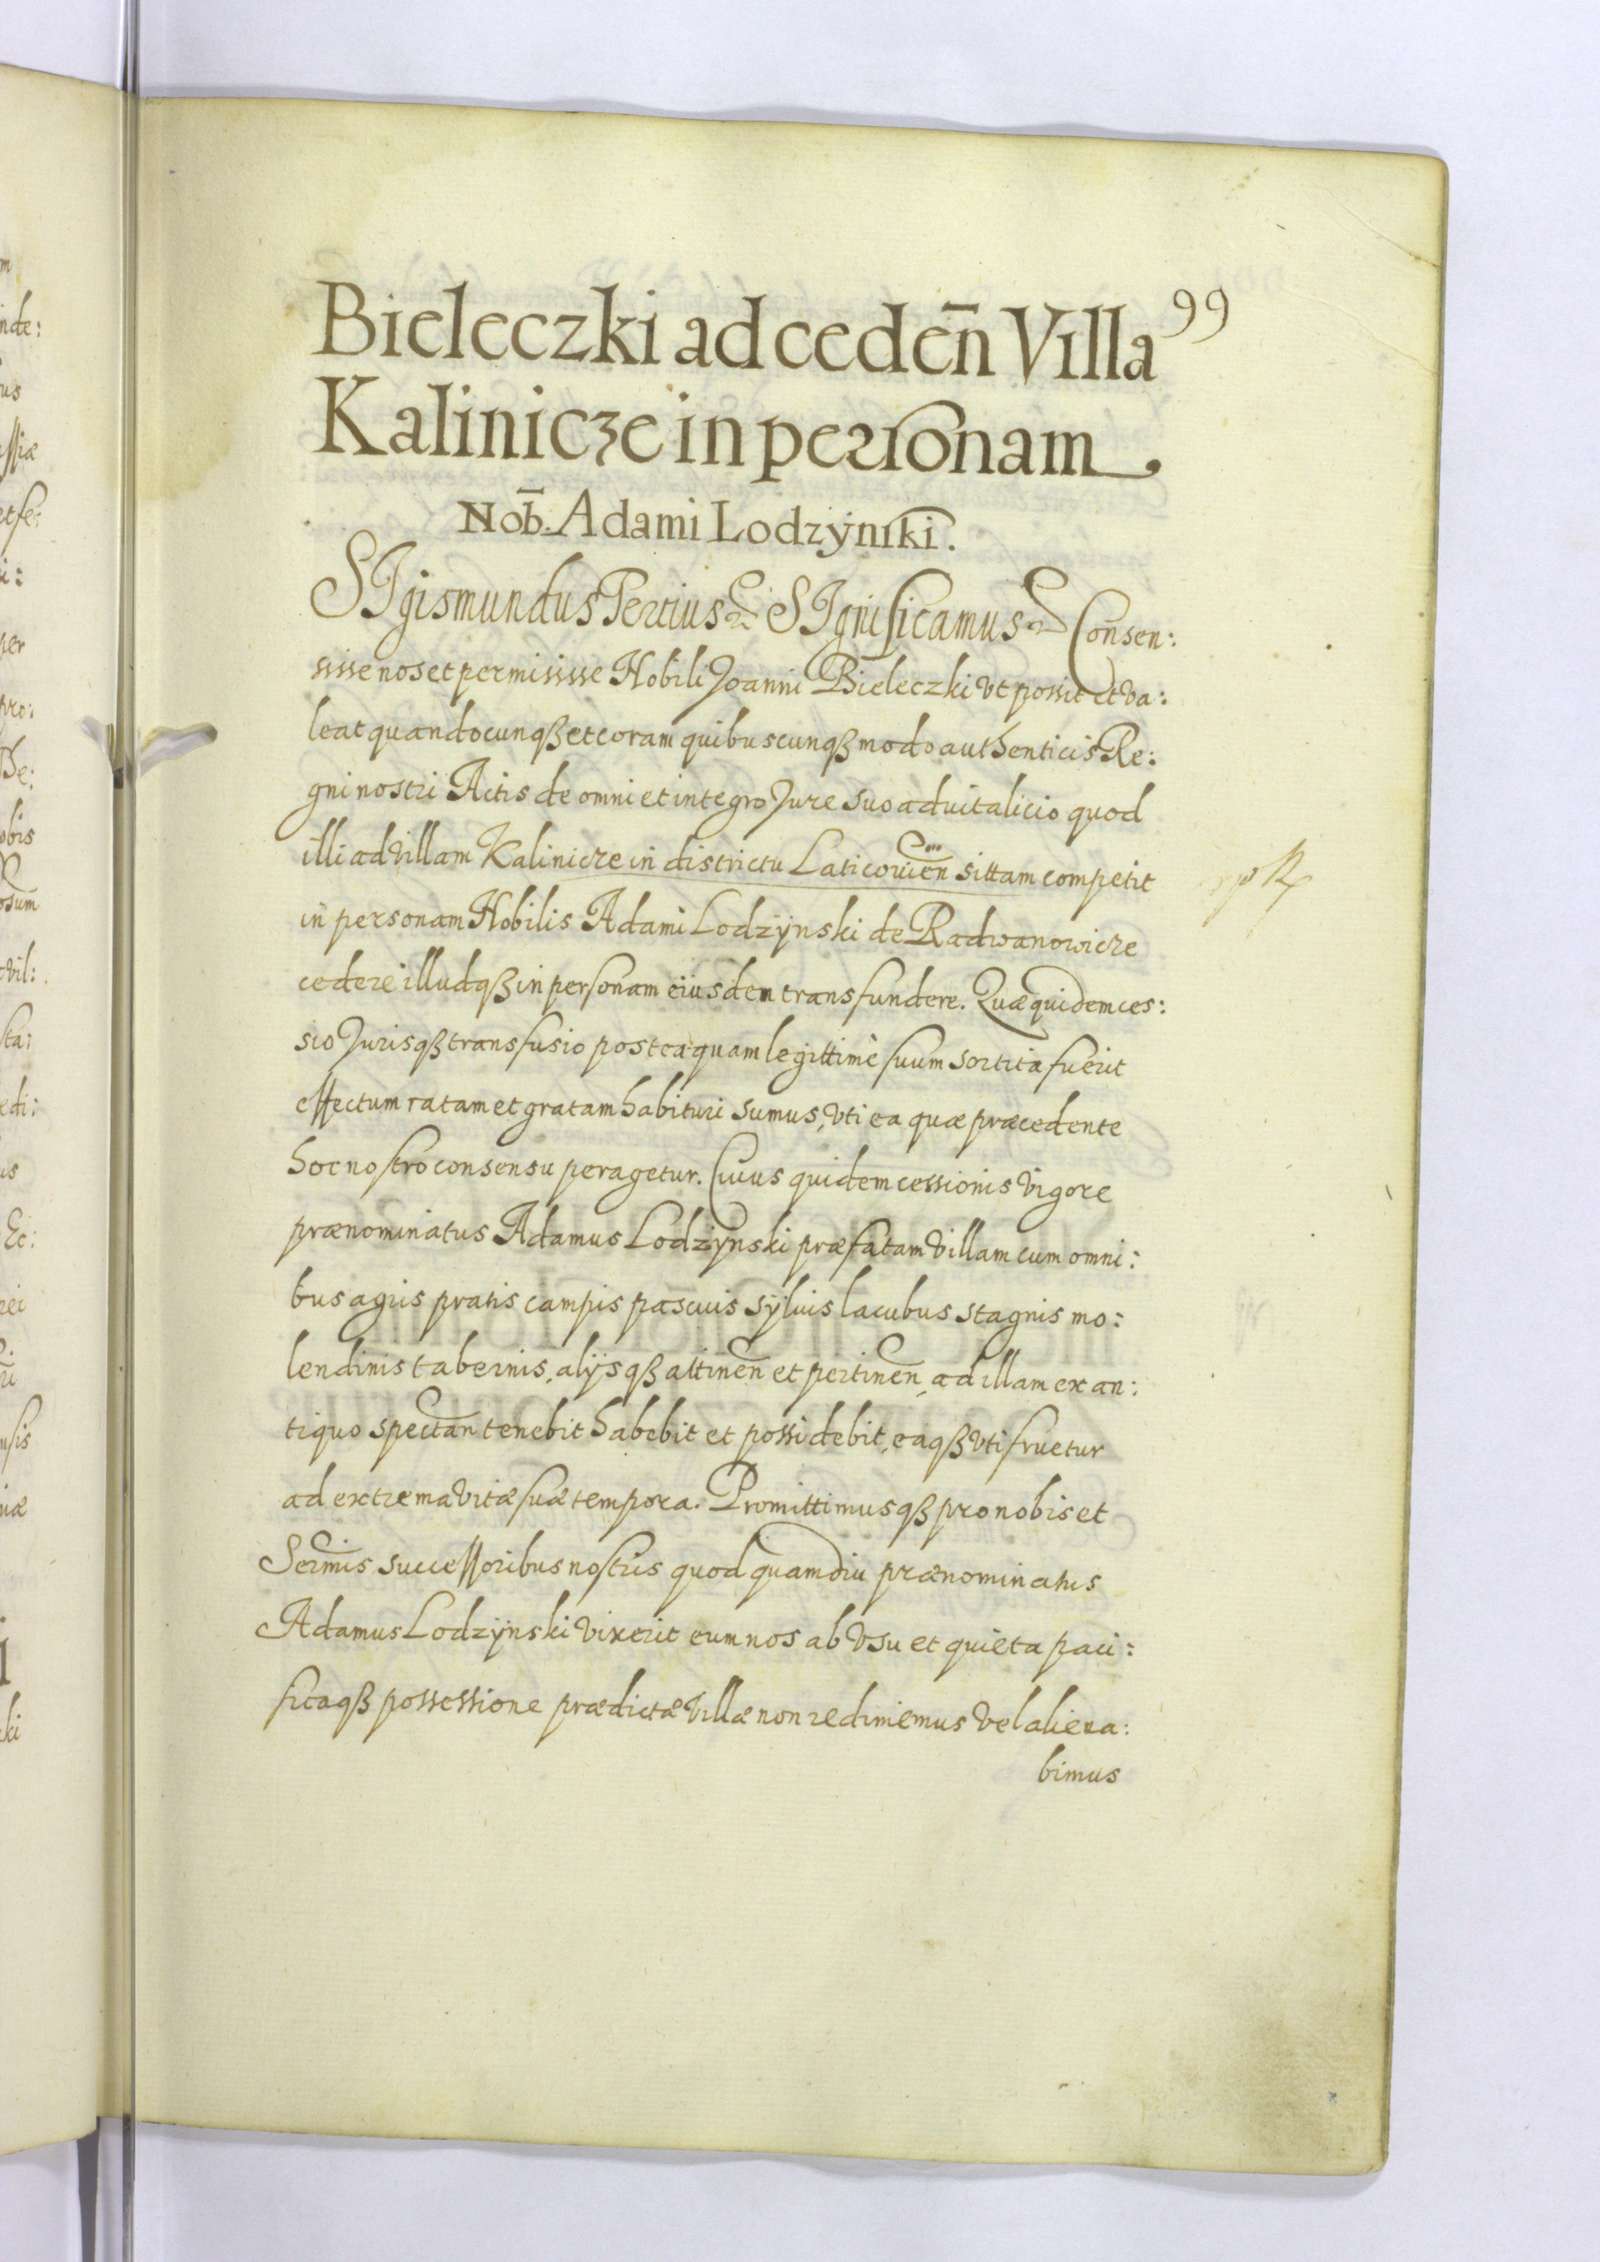 99
Bieleczki ad ceden̄ Villa
Kalinicze in personam
Nob̄. Adami Lodzÿnski.
SIgismundus Tertius SIgnificamus Consen:
sisse nos et permisisse Nobili Joanni Bieleczki vt possit et va:
leat quandocunqꝫ et coram quibuscunqꝫ modo authenticis Re:
gni nostri Actis de omni et integro Jure suo aduitalicio quod
illi ad villam Kalinicze in districtu Laticowien̄ sittam competit
in personam Nobilis Adami Lodzÿnski de Radwanowicze
cedere illudqꝫ in personam eiusdem transfundere. Quæ quidem ces:
sio Jurisqꝫ transfusio posteaquam legittimè suum sortita fuerit
effectum ratam et gratam habituri sumus, vti ea quæ præcedente
hoc nostro consensu peragetur. Cuius quidem cessionis vigore
prænominatus Adamus Lodzÿnski præfatam villam cum omni:
bus agris pratis campis pascuis sÿluis lacubus stagnis mo:
lendinis tabernis, alÿsqꝫ attinen̄ et pertinen̄, ad illam ex an:
tiquo spectan̄ tenebit habebit et possidebit, eaqꝫ vti fruetur
ad extrema vitæ suæ tempora. Promittimusqꝫ pro nobis et
Serm̄is successoribus nostris quod quamdiu prænominatus
Adamus Lodzÿnski vixerit eum nos ab vsu et quieta paci:
ficaqꝫ possessione prædictæ villæ non redimemus vel aliena:
bimus